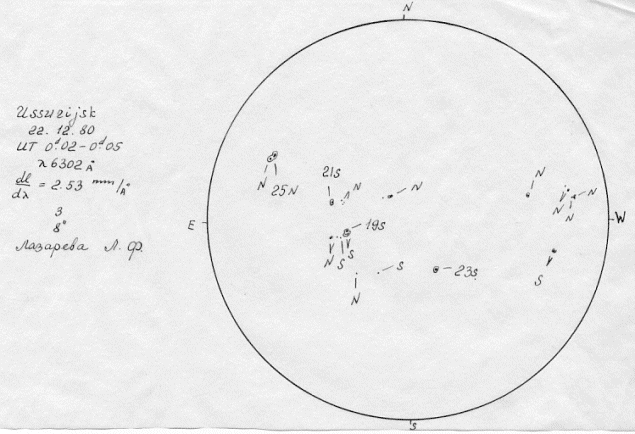 Ussurijsk
22. 12. 80
UT 0.ᵈ02 – 0.ᵈ05
λ 6302 Å
dl/dλ = 2.53 mm/Å
3
8°
Лазарева Л. Ф.
N
21s
N
25N
N
N
N
N
N
N
19s
E
W
N
S
S
S
23s
S
N
S